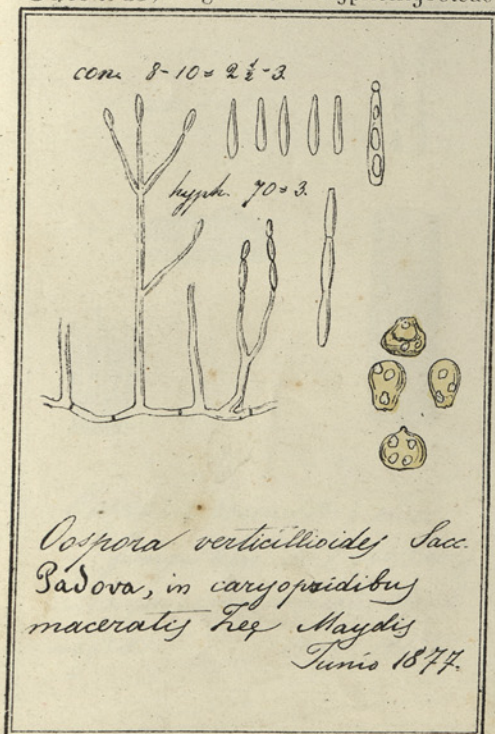 con. 8-10 = 2 ½ - 3.
hyph. 70 = 3.
Oospora verticillioides Sacc.
Padova, in caryopsidibus
maceratis Zeę Maydis
Junio 1877.